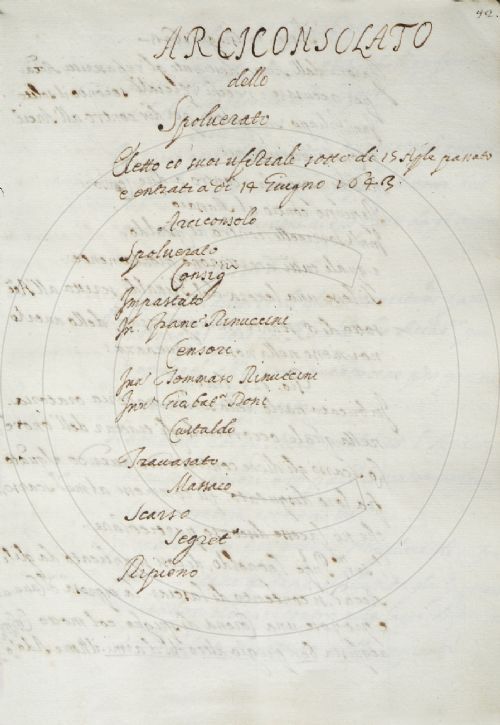 42.
ARCICONSOLATO
dello
Spoluerato
Eletto co' suoi ufiziali sotto di 15 Aprile passato
e entrati a di 14 Giugno 1643.
Arciconsolo
Spoluerato
Consigri
Impastato
Inn. Franco Rinuccini
Censori
Inno Tommaso Rinuccini
Inno Gio: Bata Doni
Castaldo
Travasato
Massaio
Scarso
Segreto
Ripieno